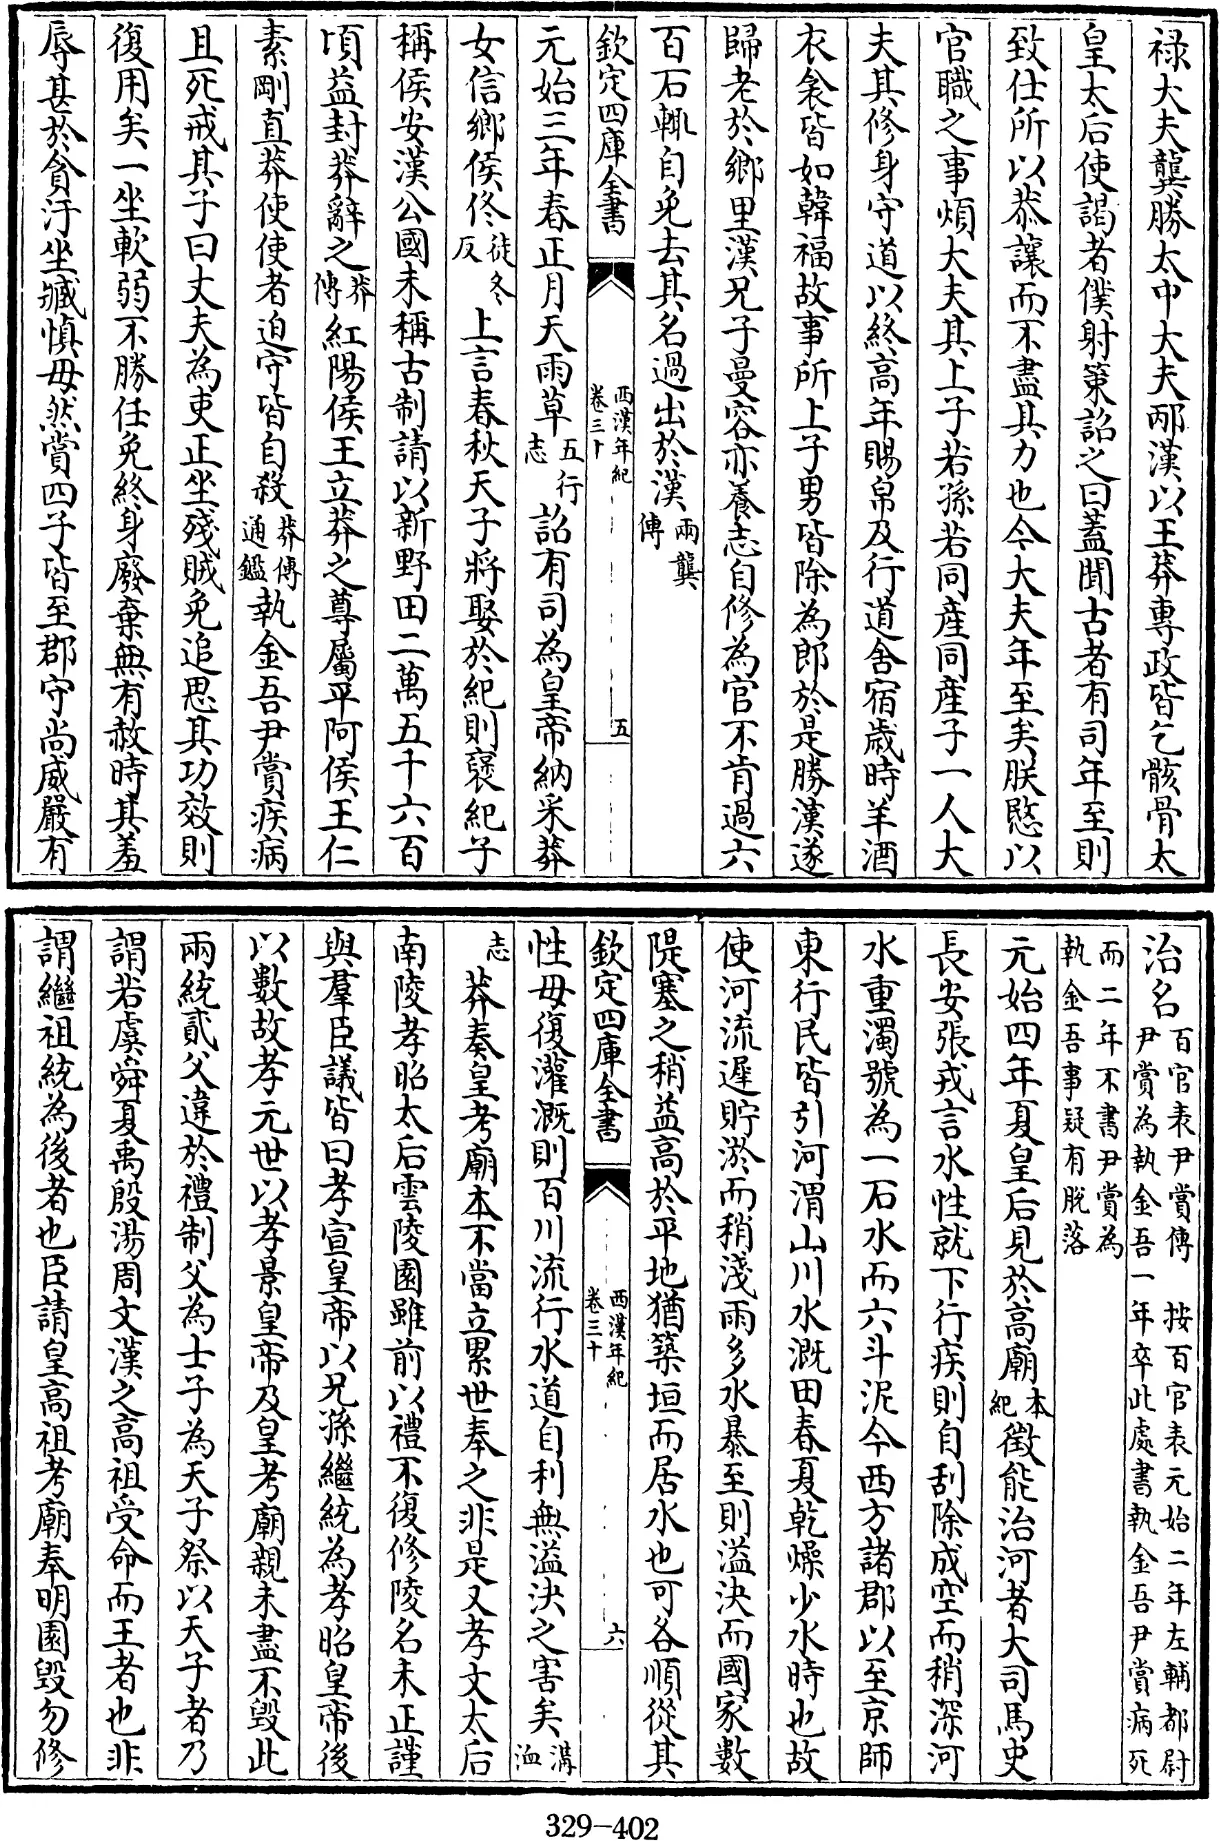 禄大夫龔勝太中大夫邴漢以王莽專政皆乞骸骨太
皇太后使謁者僕射策詔之曰蓋聞古者有司年至則
致仕所以恭讓而不盡其力也今大夫年至矣朕愍以
官職之事煩大夫其上子若孫若同産同産子一人大
夫其修身守道以終高年賜帛及行道舍宿歲時羊酒
衣衾皆如韓福故事所上子男皆除為郎於是勝漢遂
歸老於鄉里漢兄子曼容亦養志自修為官不肯過六
百石輒自免去其名過出於漢兩龔傳
欽定四庫全書 西漢年紀卷三十 五
元始三年春正月天雨草五行志詔有司為皇帝納采莽
女信鄉侯佟徒冬反上言春秋天子將娶於紀則褒紀子
稱侯安漢公國未稱古制請以新野田二萬五千六百
頃益封莽辭之莽傳紅陽侯王立莽之尊屬平阿侯王仁
素剛直莽使使者迫守皆自殺莽傳通鑑執金吾尹賞疾病
且死戒其子曰丈夫為吏正坐殘賊免追思其功效則
復用矣一坐軟弱不勝任免終身廢棄無有赦時其羞
辱甚於貪汙坐臧慎毋然賞四子皆至郡守尚威嚴有
治名百官表尹賞傳 按百官表元始二年左輔都尉
尹賞為執金吾一年卒此處書執金吾尹賞病死
而二年不書尹賞為
執金吾事疑有脫落
元始四年夏皇后見於高廟本紀徵能治河者大司馬史
長安張戎言水性就下行疾則自刮除成空而稍深河
水重濁號為一石水而六斗泥今西方諸郡以至京師
東行民皆引河渭山川水溉田春夏乾燥少水時也故
使河流遲貯淤而稍淺雨多水暴至則溢決而國家數
隄塞之稍益高於平地猶築垣而居水也可各順從其
欽定四庫全書 西漢年紀卷三十 六
性毋復灌溉則百川流行水道自利無溢決之害矣溝洫
志莽奏皇考廟本不當立累世奉之非是又孝文太后
南陵孝昭太后雲陵園雖前以禮不復修陵名未正謹
與羣臣議皆曰孝宣皇帝以兄孫繼統為孝昭皇帝後
以數故孝元世以孝景皇帝及皇考廟親未盡不毀此
兩統貳父違於禮制父為士子為天子祭以天子者乃
謂若虞舜夏禹殷湯周文漢之高祖受命而王者也非
謂繼祖統為後者也臣請皇高祖考廟奉明園毀勿修
329-402